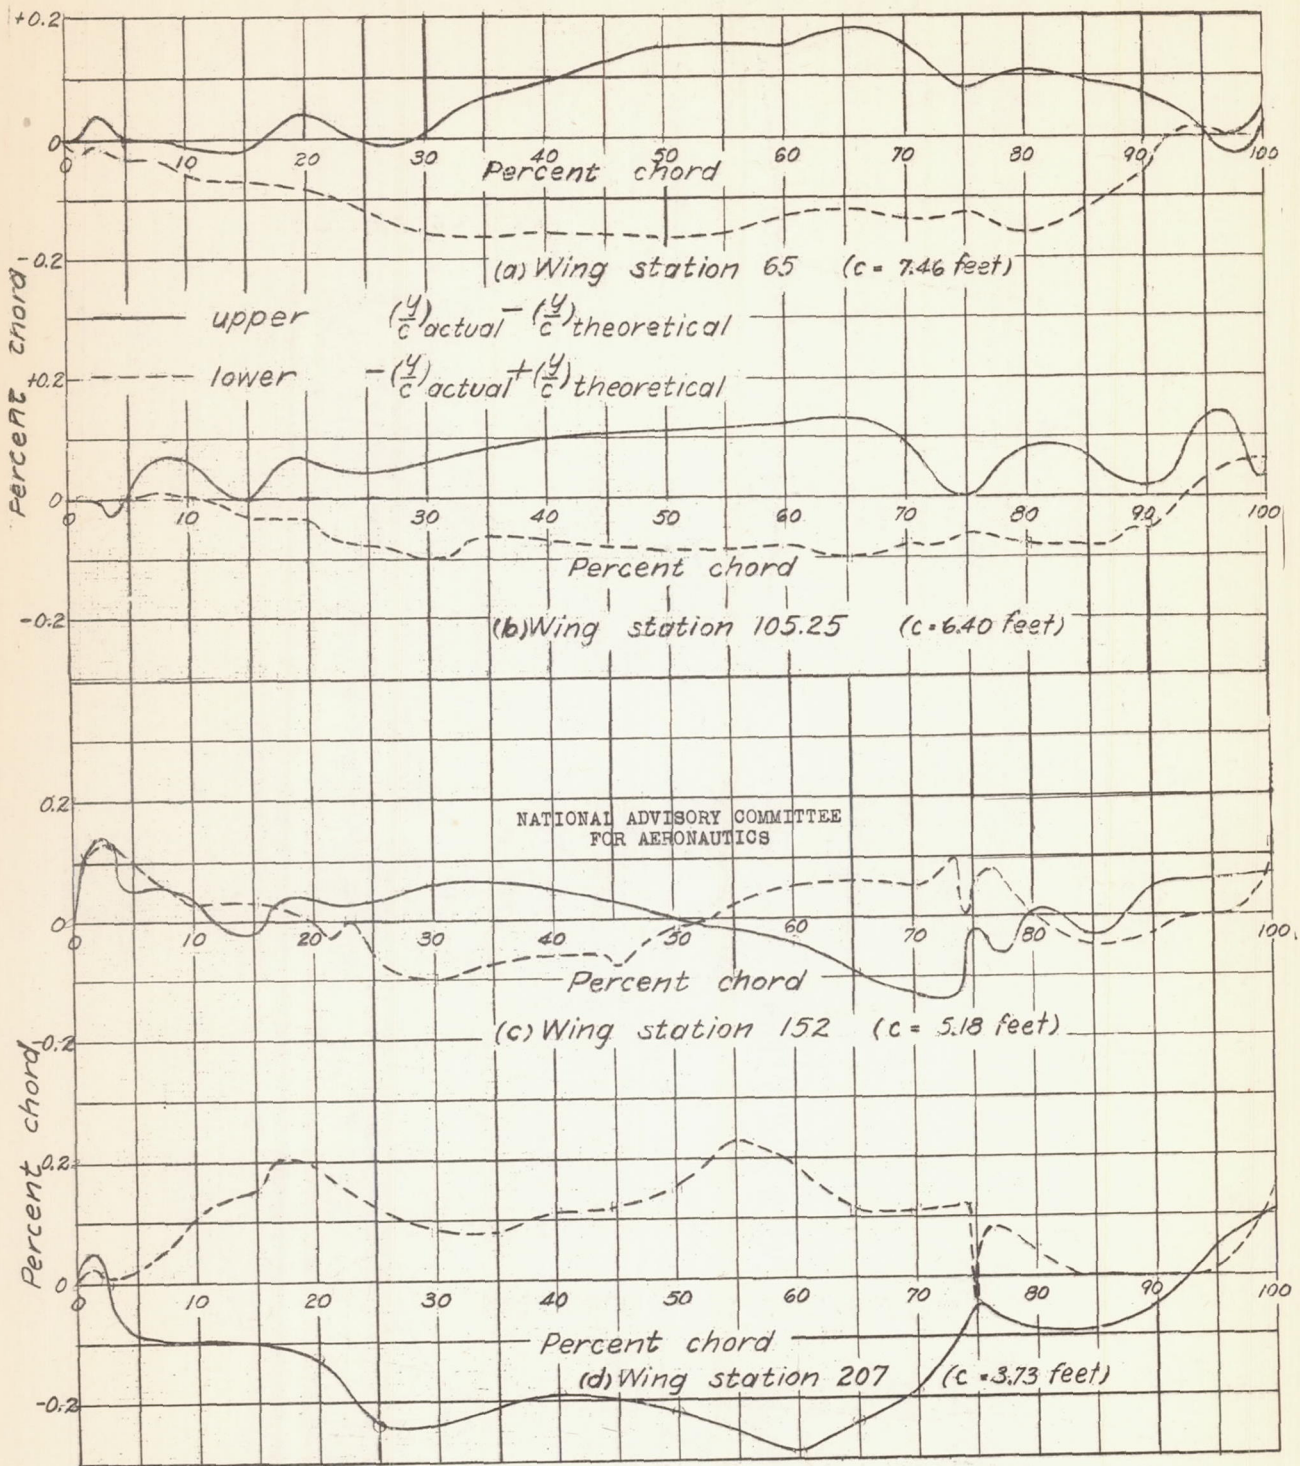 +0.2
0
0 10 20 30 40 50 60 70 80 90 100
Percent chord
-0.2
(a) Wing station 65 (c = 7.46 feet)
Percent chord
upper (y/c)actual - (y/c)theoretical
lower -(y/c)actual + (y/c)theoretical
+0.2
0
0 10 20 30 40 50 60 70 80 90 100
Percent chord
-0.2
(b) Wing station 105.25 (c = 6.40 feet)
0.2
NATIONAL ADVISORY COMMITTEE
FOR AERONAUTICS
0
0 10 20 30 40 50 60 70 80 90 100
Percent chord
-0.2
(c) Wing station 152 (c = 5.18 feet)
Percent chord
0.2
0
0 10 20 30 40 50 60 70 80 90 100
Percent chord
(d) Wing station 207 (c = 3.73 feet)
-0.2